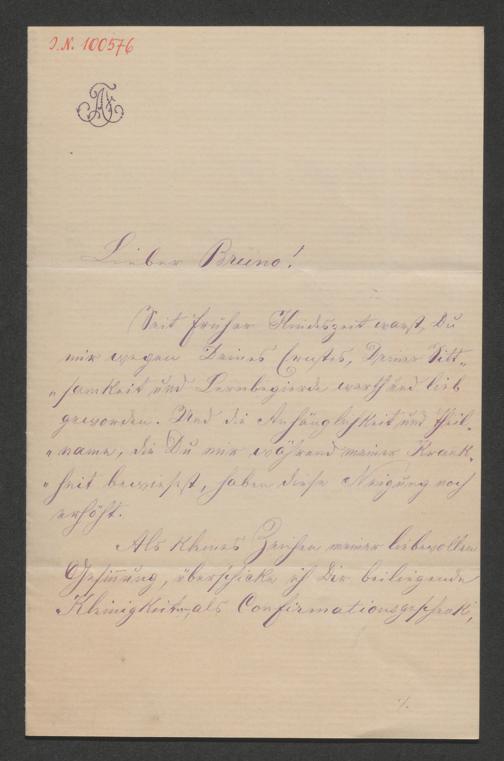 J.N. 100576
AF
Lieber Bruno!
Seit früher Kindeszeit warst Du
mir wegen Deines Ernstes, Deiner Sitt-
"samkeit und Lernbegierde werth und lieb
geworden. Und die Anhänglichkeit und Theil-
"name, die Du mir während meiner Krank-
"heit bewiesest, haben diese Neigung noch
erhöht.
Als kleines Zeichen meiner liebevollen
Gesinnung, überschicke ich Dir beiliegende
Kleinigkeit als Confirmationsgeschenk,
./.